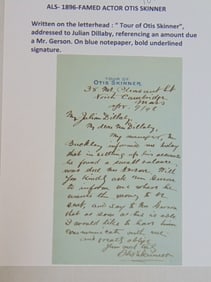 ALS- 1896-FAMED ACTOR OTIS SKINNER
Written on the letterhead : " Tour of Otis Skinner",
addressed to Julian Dillaby, referencing an amount due
a Mr. Gerson. On blue notepaper, bold underlined
signature.
TOUR OF
OTIS SKINNER
38 Mt. Pleasant St
North Cambridge
Mass
My Julian Dillaby
My dear Mr Dillaby,
My manager, Mr
Buckley informs me today
that in settling up his accounts
he found a small balance
was due Mr Gerson. Will
you kindly ask Mr Gerson
to inform me where he
wants the money to be
sent, and say to Mr Gerson
that as soon as he is able
I would like to have him
communicate with me,
and greatly oblige
Yours very truly
Otis Skinner